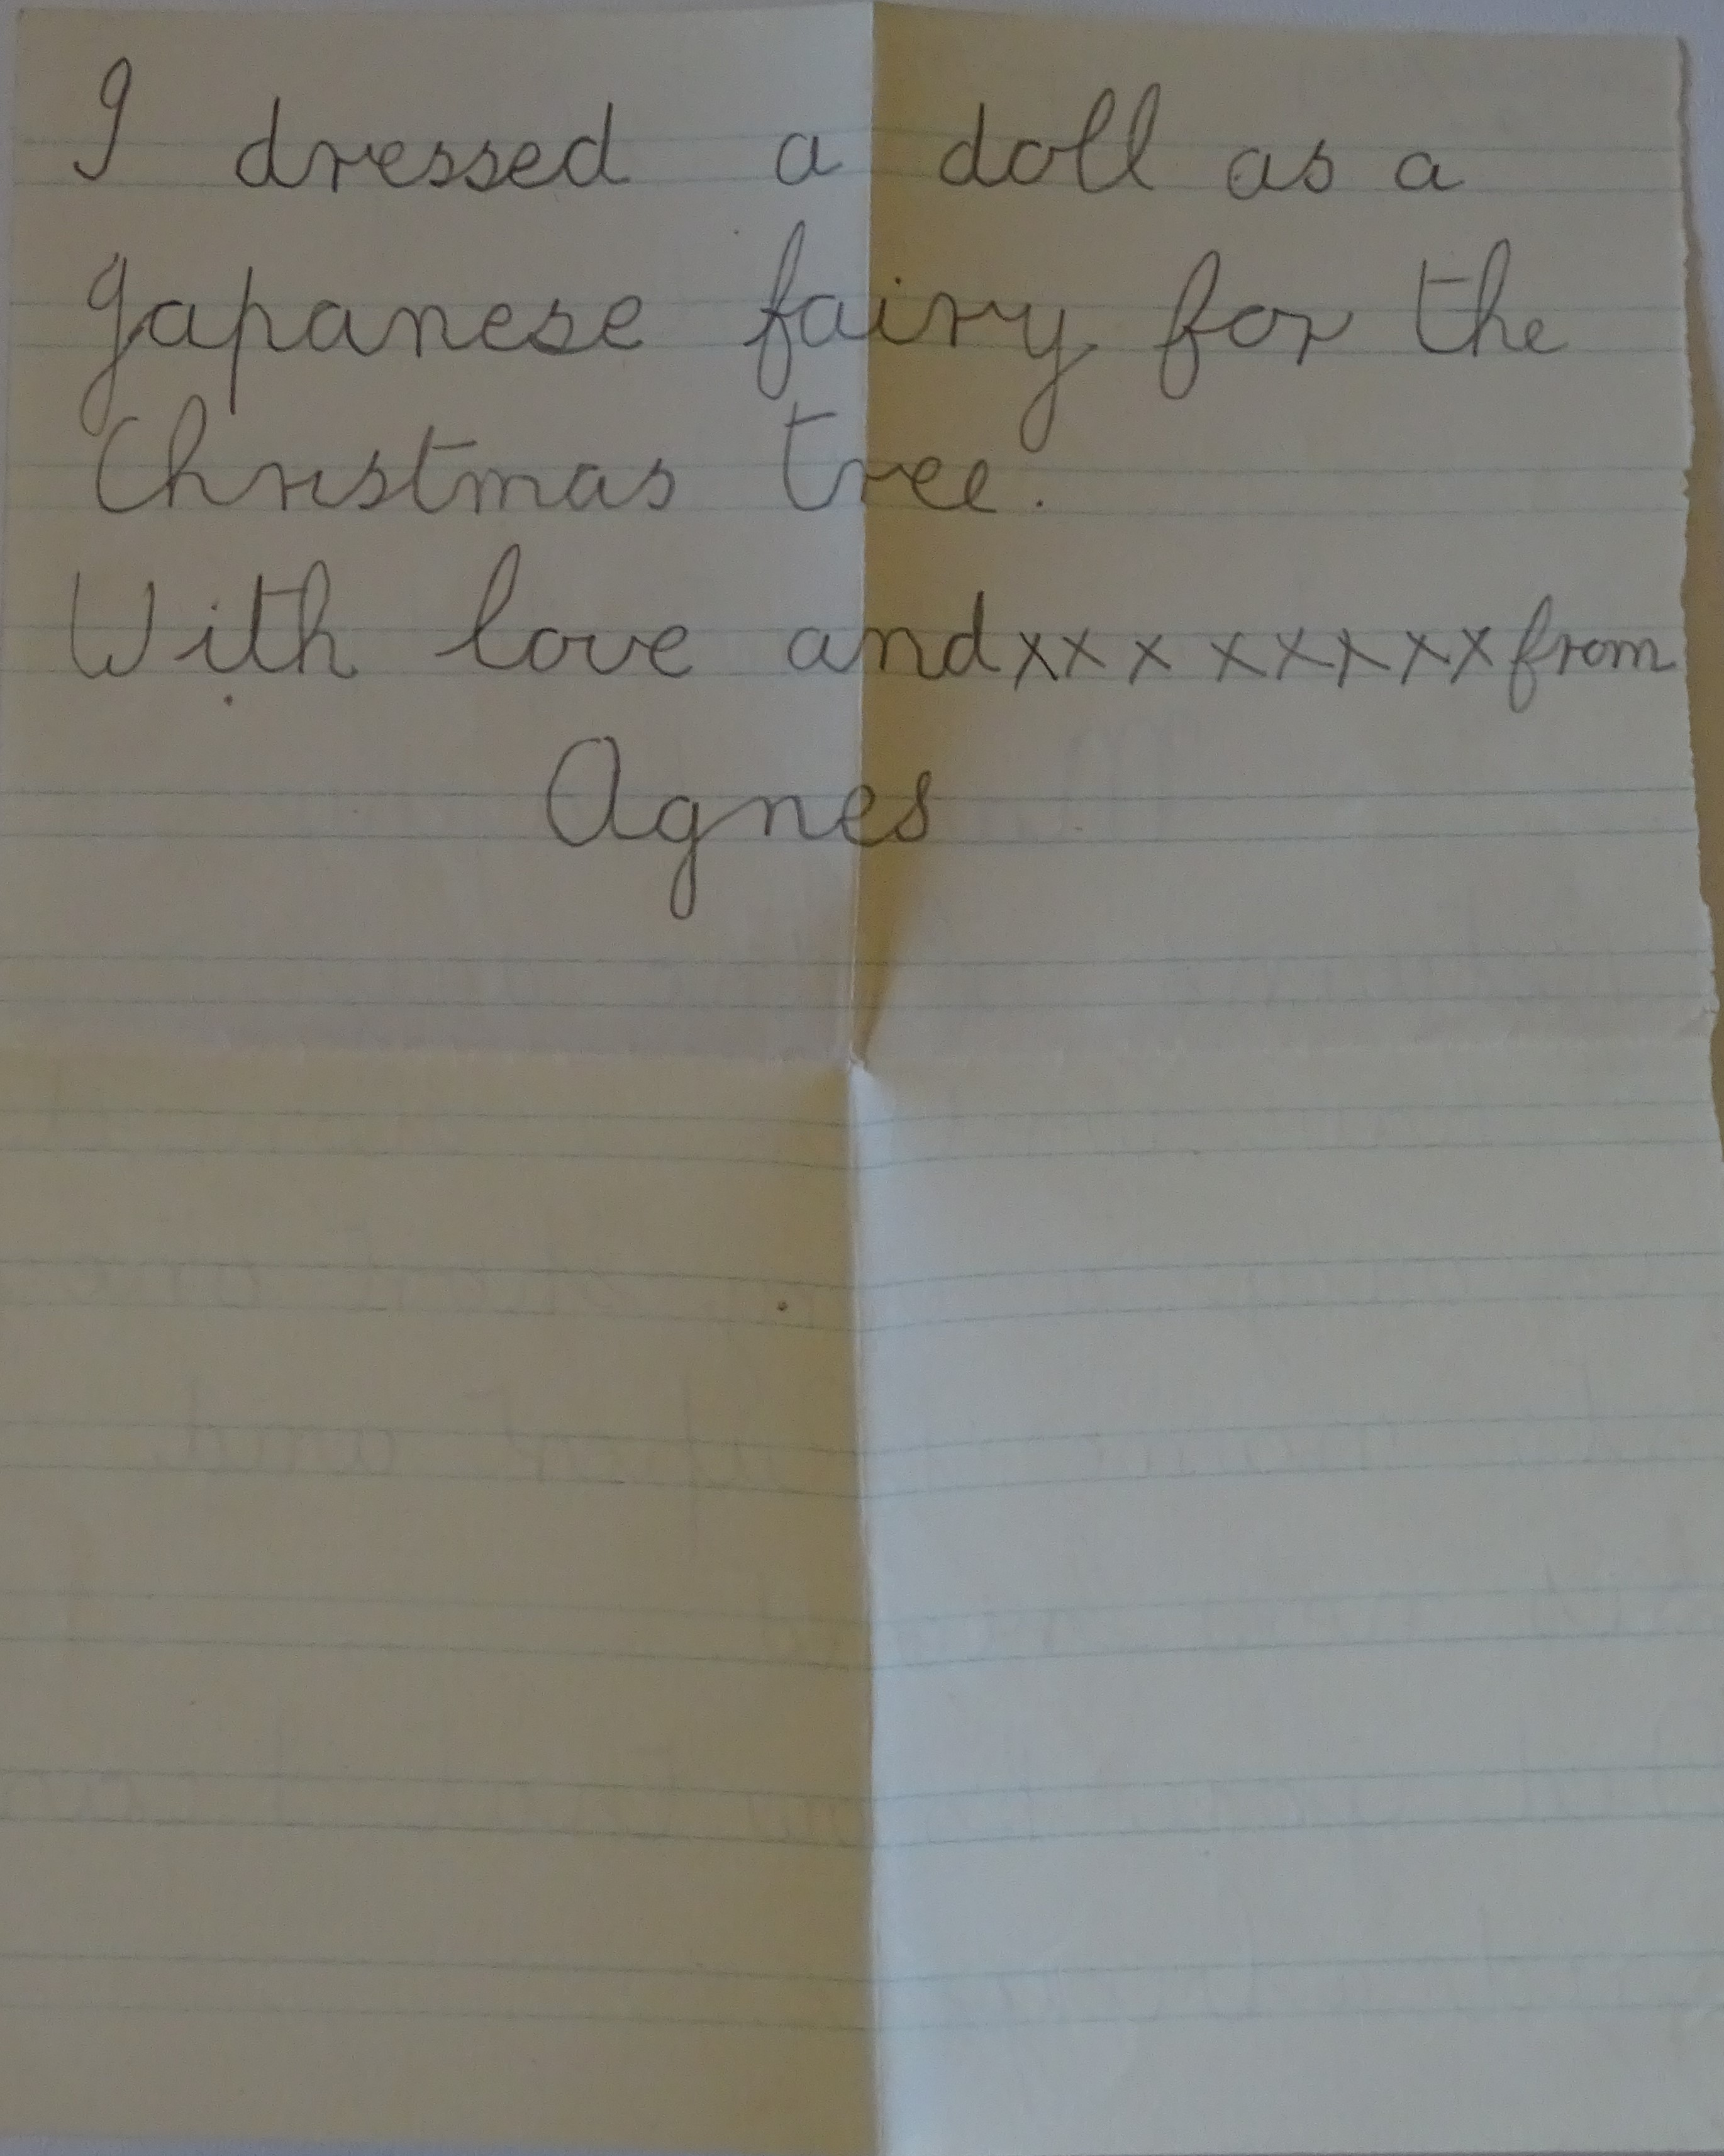 I dressed a doll as a
Japanese fairy for the
Christmas tree.
With love and x x x x x x x x from
Agnes